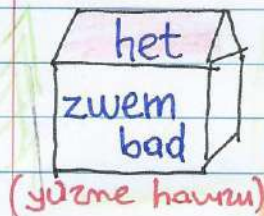 het
zwem
bad
(yüzme havuzu)